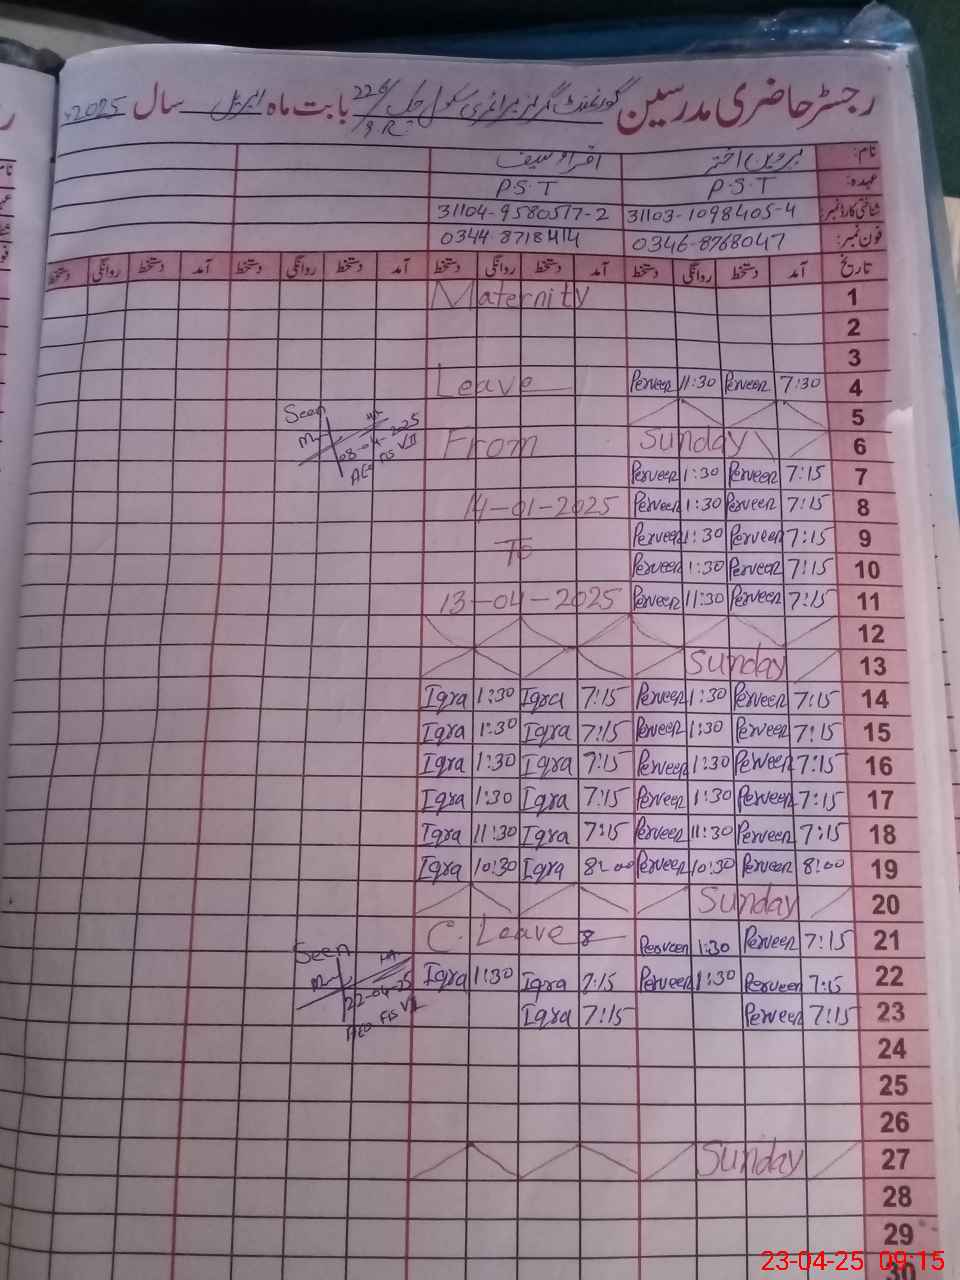 رجسٹر حاضری مدرسین گورنمنٹ گرلز پرائمری سکول چک 226/9R بابت ماہ اپریل سال 2025ء
نام: پروین اختر اقراء یوسف
عہدہ: P.S.T P.S.T
شناختی کارڈ نمبر: 31103-1098405-4 31104-9580517-2
فون نمبر: 0346-8768047 0344-8718414
تاریخ آمد دستخط روانگی دستخط آمد دستخط روانگی دستخط آمد دستخط روانگی دستخط آمد دستخط روانگی دستخط
Maternity 1
2
3
Leave Perveen 11:30 Perveen 7:30 4
5
From Sunday 6
Perveen 1:30 Perveen 7:15 7
14-01-2025 Perveen 1:30 Perveen 7:15 8
To Perveen 1:30 Perveen 7:15 9
Perveen 1:30 Perveen 7:15 10
13-04-2025 Perveen 11:30 Perveen 7:15 11
12
Sunday 13
Iqra 1:30 Iqra 7:15 Perveen 1:30 Perveen 7:15 14
Iqra 1:30 Iqra 7:15 Perveen 1:30 Perveen 7:15 15
Iqra 1:30 Iqra 7:15 Perveen 1:30 Perveen 7:15 16
Iqra 1:30 Iqra 7:15 Perveen 1:30 Perveen 7:15 17
Iqra 11:30 Iqra 7:15 Perveen 11:30 Perveen 7:15 18
Iqra 10:30 Iqra 8:00 Perveen 10:30 Perveen 8:00 19
Sunday 20
C. Leave 8 Perveen 1:30 Perveen 7:15 21
Iqra 1:30 Iqra 7:15 Perveen 1:30 Perveen 7:15 22
Iqra 7:15 Perveen 7:15 23
24
25
26
Sunday 27
28
29
30
Seen
08-04-2025
AEO FTS VII
Seen
22-04-25
AEO FTS VII
23-04-25 09:15